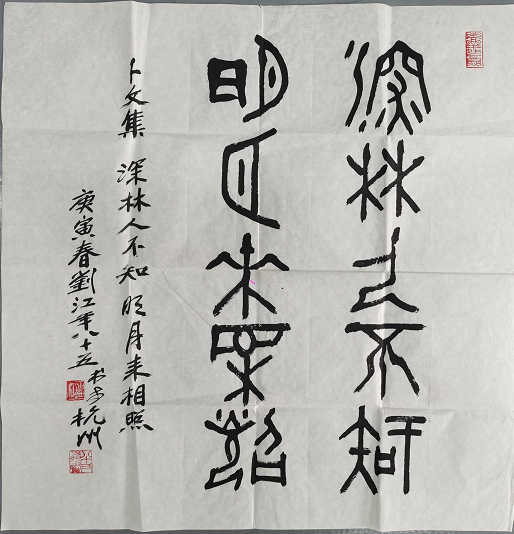 深林人不知
明月来相照
卜文集 深林人不知 明月来相照
庚寅春劉江年八十五书于杭州